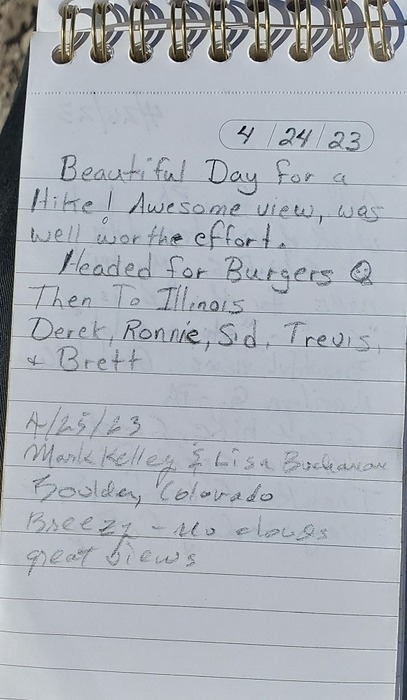 4/24/23
Beautiful Day for a
Hike! Awesome view, was
well worthe effort.
Headed for Burgers
Then To Illinois
Derek, Ronnie, Sid, Trevis,
& Brett
4/25/23
Mark Kelley & Lisa Buchanan
Boulder, Colorado
Breezy - No clouds
great views